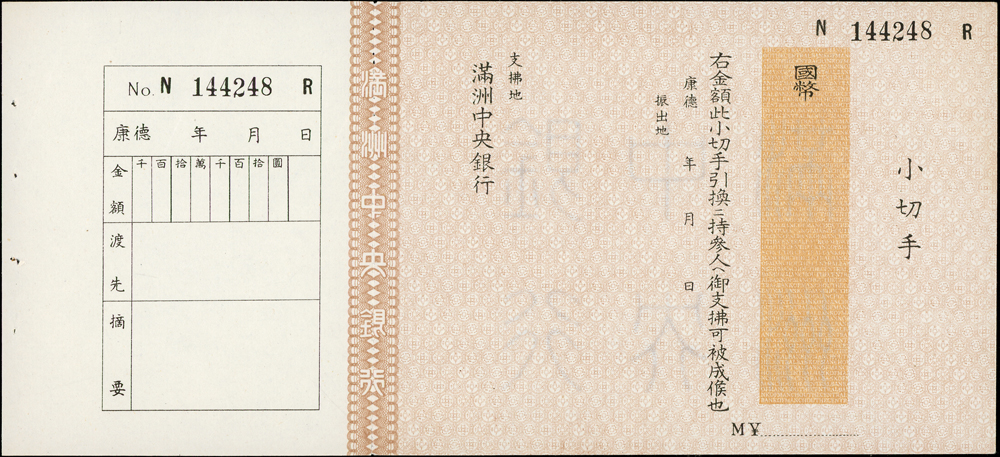 No. N 144248 R
康德 年 月 日
金額
千 百 拾 萬 千 百 拾 圓
渡先
摘要
滿洲中央銀行
N 144248 R
小切手
國幣
右金額此小切手引換ニ持參人ヘ御支拂可被成候也
康德 年 月 日
振出地
支拂地
滿洲中央銀行
M¥